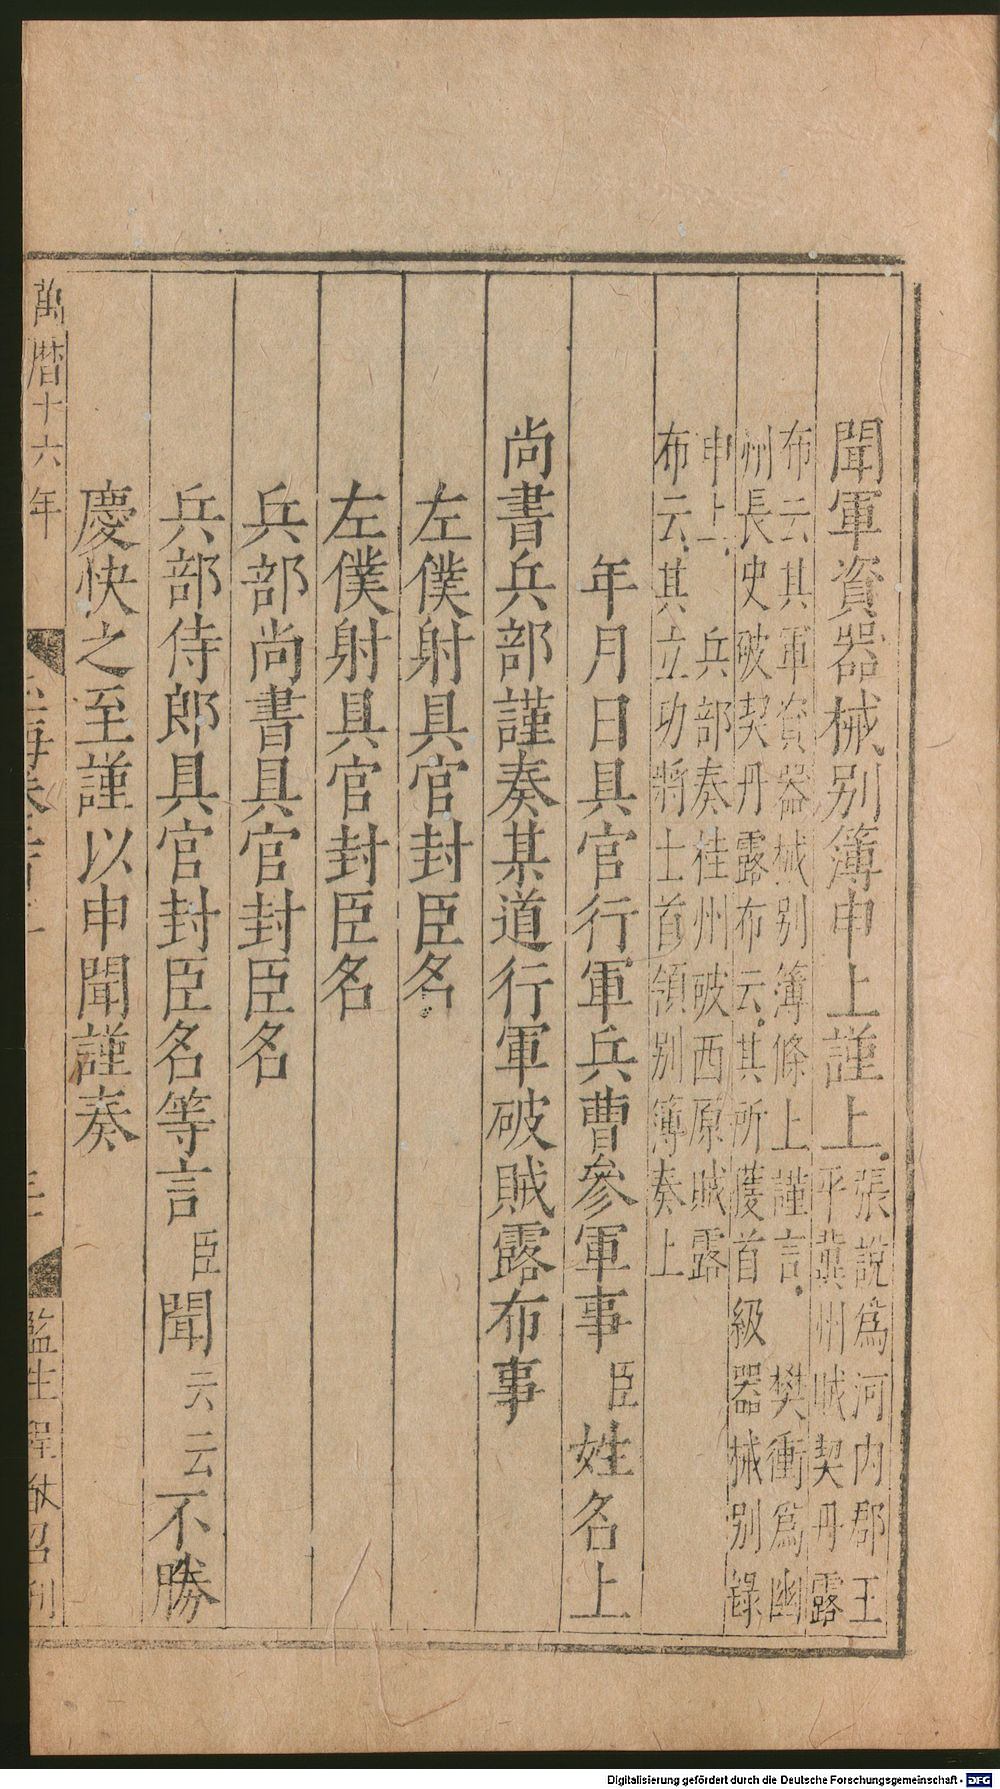 聞軍資器械别簿申上謹上張說爲河内郡王
平兾州賊契丹露
布云其軍資器械别簿條上謹言 樊衝爲幽
州長史破契丹露布云其所獲首級器械别録
申上 兵部奏桂州破西原賊露
布云其立功將士首領别簿奏上
年月日具官行軍兵曹參軍事臣姓名上
尚書兵部謹奏某道行軍破賊露布事
左僕射具官封臣名
左僕射具官封臣名
兵部尚書具官封臣名
兵部侍郎具官封臣名等言臣聞云云不勝
慶快之至謹以申聞謹奏
萬暦十六年
監生
Digitalisierung gefördert durch die Deutsche Forschungsgemeinschaft - DFG